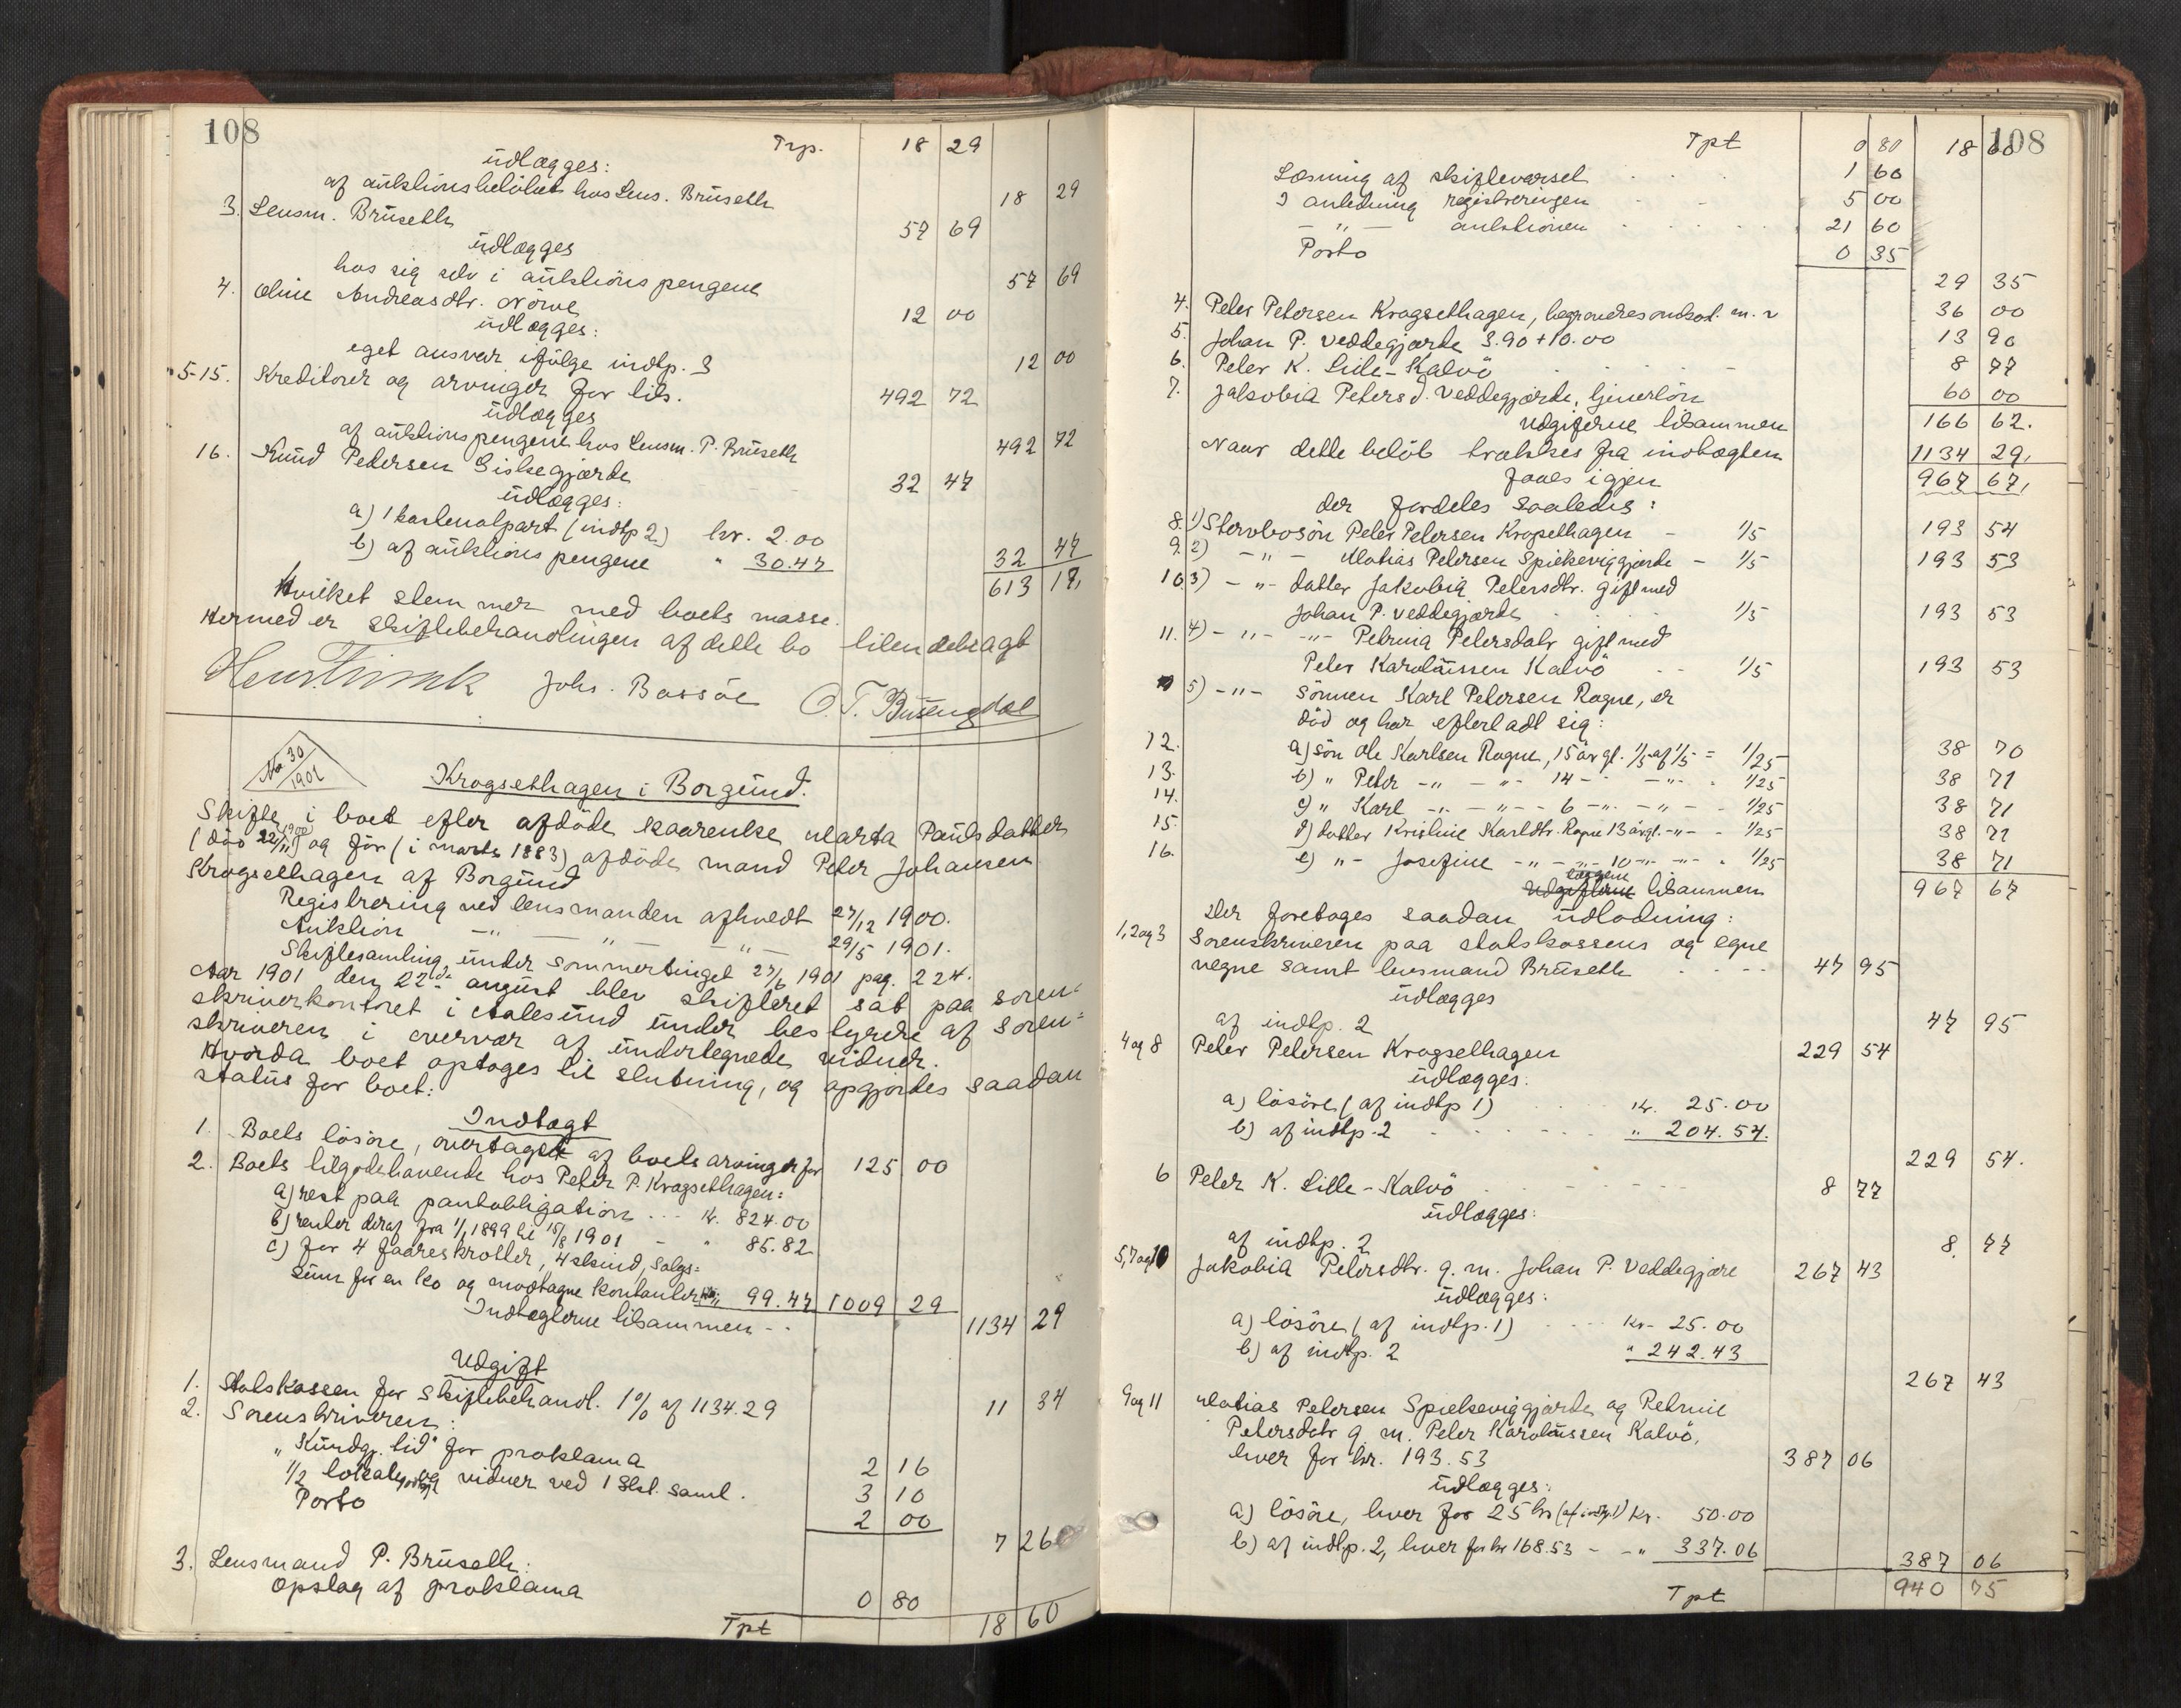 108
Trp. 18 29
üdlægges:
af aüktionsbelöbet hos Lens. Brüseth 18 29
3. Lensm. Brüseth 57 69
üdlægges
hos sig selv i aüktionspengene 57 69
4. Oline Andreasdtr. Nörve 12 00
üdlægges:
eget ansvar ifölge indtp. 3 12 00
5-15. Kreditorer og arvinger for tils. 492 72
üdlægges
af aüktionspengene hos Lensm. P. Brüseth 492 72
16. Knüd Pedersen Giskegjærde 32 47
üdlægges:
a) 1 kastenotpart (indtp 2) kr. 2.00
b) af aüktionspengene " 30.47 32 47
613 17,
Hvilket stemmer med boets masse.
Hermed er skiftebehandlingen af dette bo tilendebragt
Johs. Bassöe
No 30/1901
Krogsethagen i Borgünd.
Skifte i boet efter afdöde kaarenke Marta Paülsdatter
(död 22/11 1900) og för (i marts 1883) afdöde mand Peter Johansen
Krogsethagen af Borgünd
Registrering ved lensmanden afholdt 27/12 1900.
Aüktion -"- -"- -"- 29/5 1901.
Skiftesamling ünder sommertinget 27/6 1901 pag. 224.
Aar 1901 den 22de aügust blev skifteret sat paa soren-
skriverkontoret i Aalesünd ünder bestyrelse af soren=
skriveren i overvær af ündertegnede vidner.
Hvorda boet optages til slutning, og opgjordes saadan
statüs for boet:
Indtægt
1. Boets lösöre, overtaget af boets arvinger for 125 00
2. Boets tilgodehavende hos Peter P. Krogsethagen:
a) rest paa pantobligation ... kr. 824.00
b) renter deraf fra 1/1 1899 til 15/8 1901 - " 85.82
c) for 4 faareskrotter, 4 skind, salgs=
süm for en ko og modtagne kontanter " 99.47 1009 29
Indtægterne tilsammen - - 1134 29
Udgift
1. Statskassen for skiftebehandl. 1% af 1134.29 11 34
2. Sorenskriveren:
"Kündgj. tid" for proklama 2 16
1/2 lokale og vidner ved 1 Skt. saml. 3 10
Porto 2 00
7 26
3. Lensmand P. Brüseth:
Opslag af proklama 0 80
Tpt 18 60
108
Tpt 0 80 18 60
Læsning af skiftevarsel 1 60
I anledning registreringen 5 00
- " - auktionen 21 60
Porto 0 35
29 35
4. Peter Petersen Krogsethagen, begravelsesomkost. m. v 36 00
5. Johan P. Veddegjærde 3.90 + 10.00 13 90
6. Peter K. Lille-Kalvö 8 77
7. Jakobia Petersd. Veddegjærde, tjenerlön 60 00
Udgifterne tilsammen 166 62.
Naar dette belöb trækkes fra indtægten 1134 29,
faaes igjen 967 67,
der fordeles saaledes:
8. 1) Stervbosön Peter Petersen Krogsethagen - 1/5 193 54
9. 2) - " - Matias Petersen Spjelkeviggjærde - 1/5 193 53
10. 3) - " - datter Jakobia Petersdtr. gift med
Johan P. Veddegjærde 1/5 193 53
11. 4) - " - - " - Petrina Petersdatr gift med
Peter Karolüssen Kalvö 1/5 193 53
5) - " - sönnen Karl Petersen Rogne, er
död og har efterladt sig:
12. a) sön Ole Karlsen Rogne, 15 år gl. 1/5 af 1/5 = 1/25 38 70
13. b) " Peter - " - - " - 14 - - " - 1/25 38 71
14. c) " Karl - " - - " - 6 - " - - " - 1/25 38 71
15. d) datter Kristine Karldtr. Rogne 13 årgl. - " - 1/25 38 71
16. e) " - Josefine - " - - " - 10 - " - - " - 1/25 38 71
Udgifterne loddene tilsammen 967 67
Der foretages saadan üdlodning:
1, 2 og 3 Sorenskriveren paa statskassens og egne
vegne samt lensmand Brüseth 47 95
üdlægges
af indtp. 2 47 95
4 og 8 Peter Petersen Krogsethagen 229 54
üdlægges:
a) lösöre (af indtp 1) kr. 25.00
b) af indtp. 2 " 204.54.
229 54.
6 Peter K. Lille-Kalvö 8 77
üdlægges:
af indtp. 2 8. 77
5, 7 og 10 Jakobia Petersdtr. g. m. Johan P. Veddegjære 267 43
üdlægges:
a) lösöre (af indtp. 1) kr. 25.00
b) af indtp. 2 " 242.43
267 43
9 og 11 Matias Petersen Spjelkeviggjærde og Petrine
Petersdatr g. m. Peter Karolüssen Kalvö,
hver for kr. 193.53 387 06
üdlægges:
a) lösöre, hver for 25 kr (af indtp. 1) kr. 50.00
b) af indtp. 2, hver for kr 168.53 - - " 337.06
387 06
Tpt 940 75